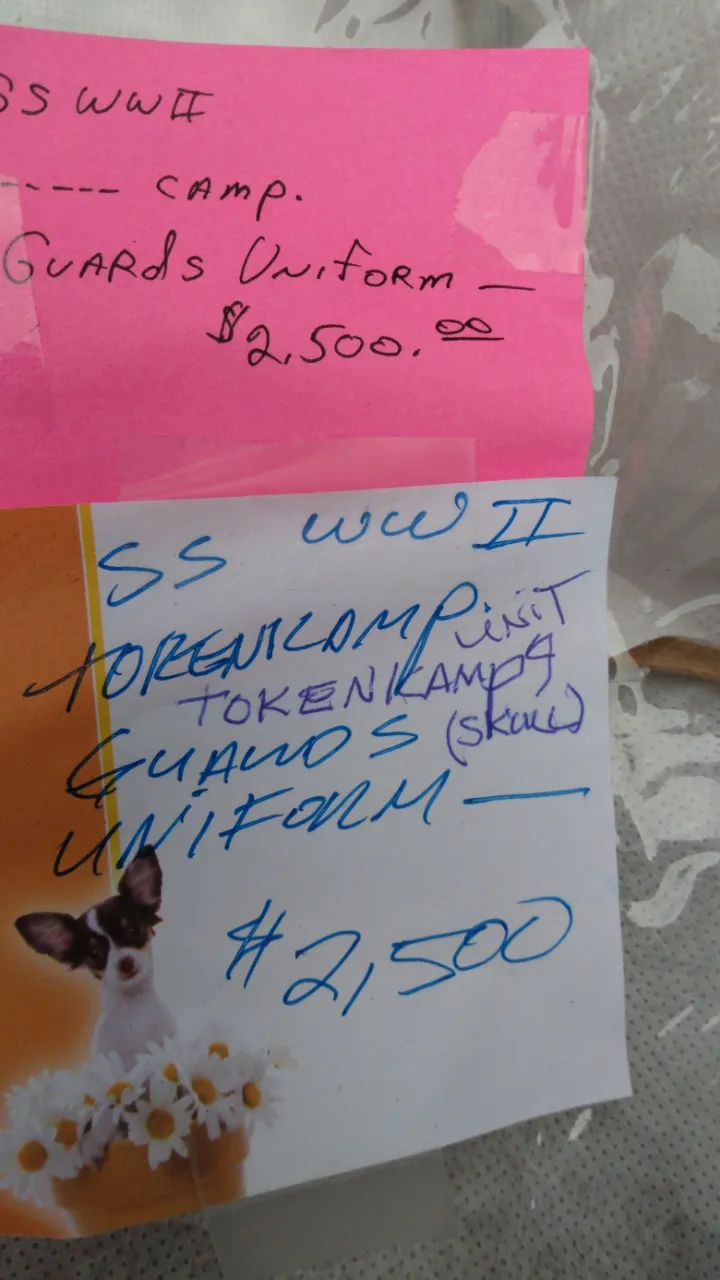 SS WW II
------ CAMP.
GUARdS UNiFORM —
$2,500.00
SS WW II
TOKENKAMP.
UNIT
TOKENKAMPG
GUARDS (SKULL)
UNIFORM —
$2,500